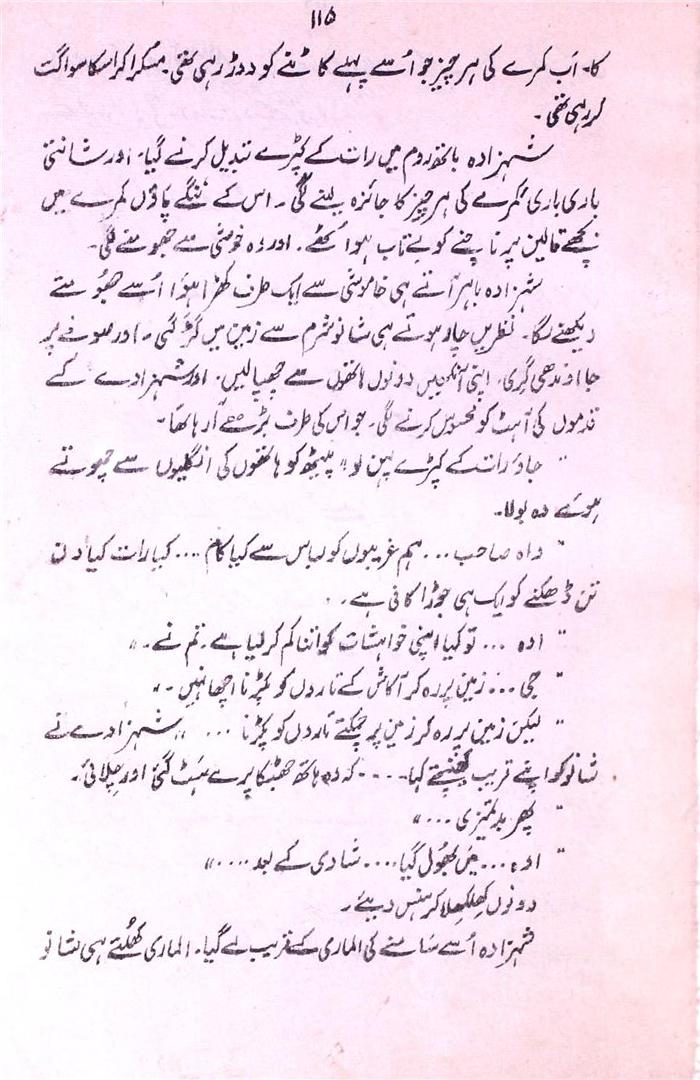 ۱۱۵
کا۔ اب کمرے کی ہر چیز جو اُسے پہلے کاٹنے کو دوڑ رہی تھی۔ مسکرا کر اسکا سواگت
کر رہی تھی۔
شہزادہ باتھ روم میں رات کے کپڑے تبدیل کرنے گیا۔ اور شانتی
باری باری کمرے کی ہر چیز کا جائزہ لینے لگی۔ اس کے ننگے پاؤں کمرے میں
بچھے قالین پر ناچنے کو بے تاب ہو اُٹھے۔ اور وہ خوشی سے جھومنے لگی۔
شہزادہ باہر آتے ہی خاموشی سے ایک طرف کھڑا ہوا اُسے جھومتے
دیکھنے لگا۔ نظریں چار ہوتے ہی شانو شرم سے زمین میں گڑ گئی۔ اور صوفے پر
جا اوندھی گری۔ اپنی آنکھیں دونوں ہاتھوں سے چھپا لیں۔ اور شہزادے کے
قدموں کی آہٹ کو محسوس کرنے لگی۔ جو اس کی طرف بڑھے آ رہا تھا۔
" جاؤ رات کے کپڑے پہن لو" پیٹھ کو ہاتھوں کی انگلیوں سے چھوتے
ہوئے وہ بولا۔
" واہ صاحب... ہم غریبوں کو لباس سے کیا کام .... کیا رات کیا دن
تن ڈھکنے کو ایک ہی جوڑا کافی ہے۔
" اوہ ... تو کیا اپنی خواہشات کو اتنا کم کر لیا ہے۔ تم نے۔"
" جی... زمین پر رہ کر آکاش کے تاروں کو پکڑنا اچھا نہیں۔"
" لیکن زمین پر رہ کر زمین پر چمکتے تاروں کو پکڑنا ...." شہزادے نے
شانو کو اپنے قریب کھینچتے کہا.... کہ وہ ہاتھ جھٹکا پرے ہٹ گئی اور چلائی۔
" پھر بدتمیزی ..."
" اوہ... میں بھول گیا.... شادی کے بعد ...."
دونوں کھلکھلا کر ہنس دیئے۔
شہزادہ اُسے سامنے کی الماری کے قریب لے گیا۔ الماری کھلتے ہی شانو